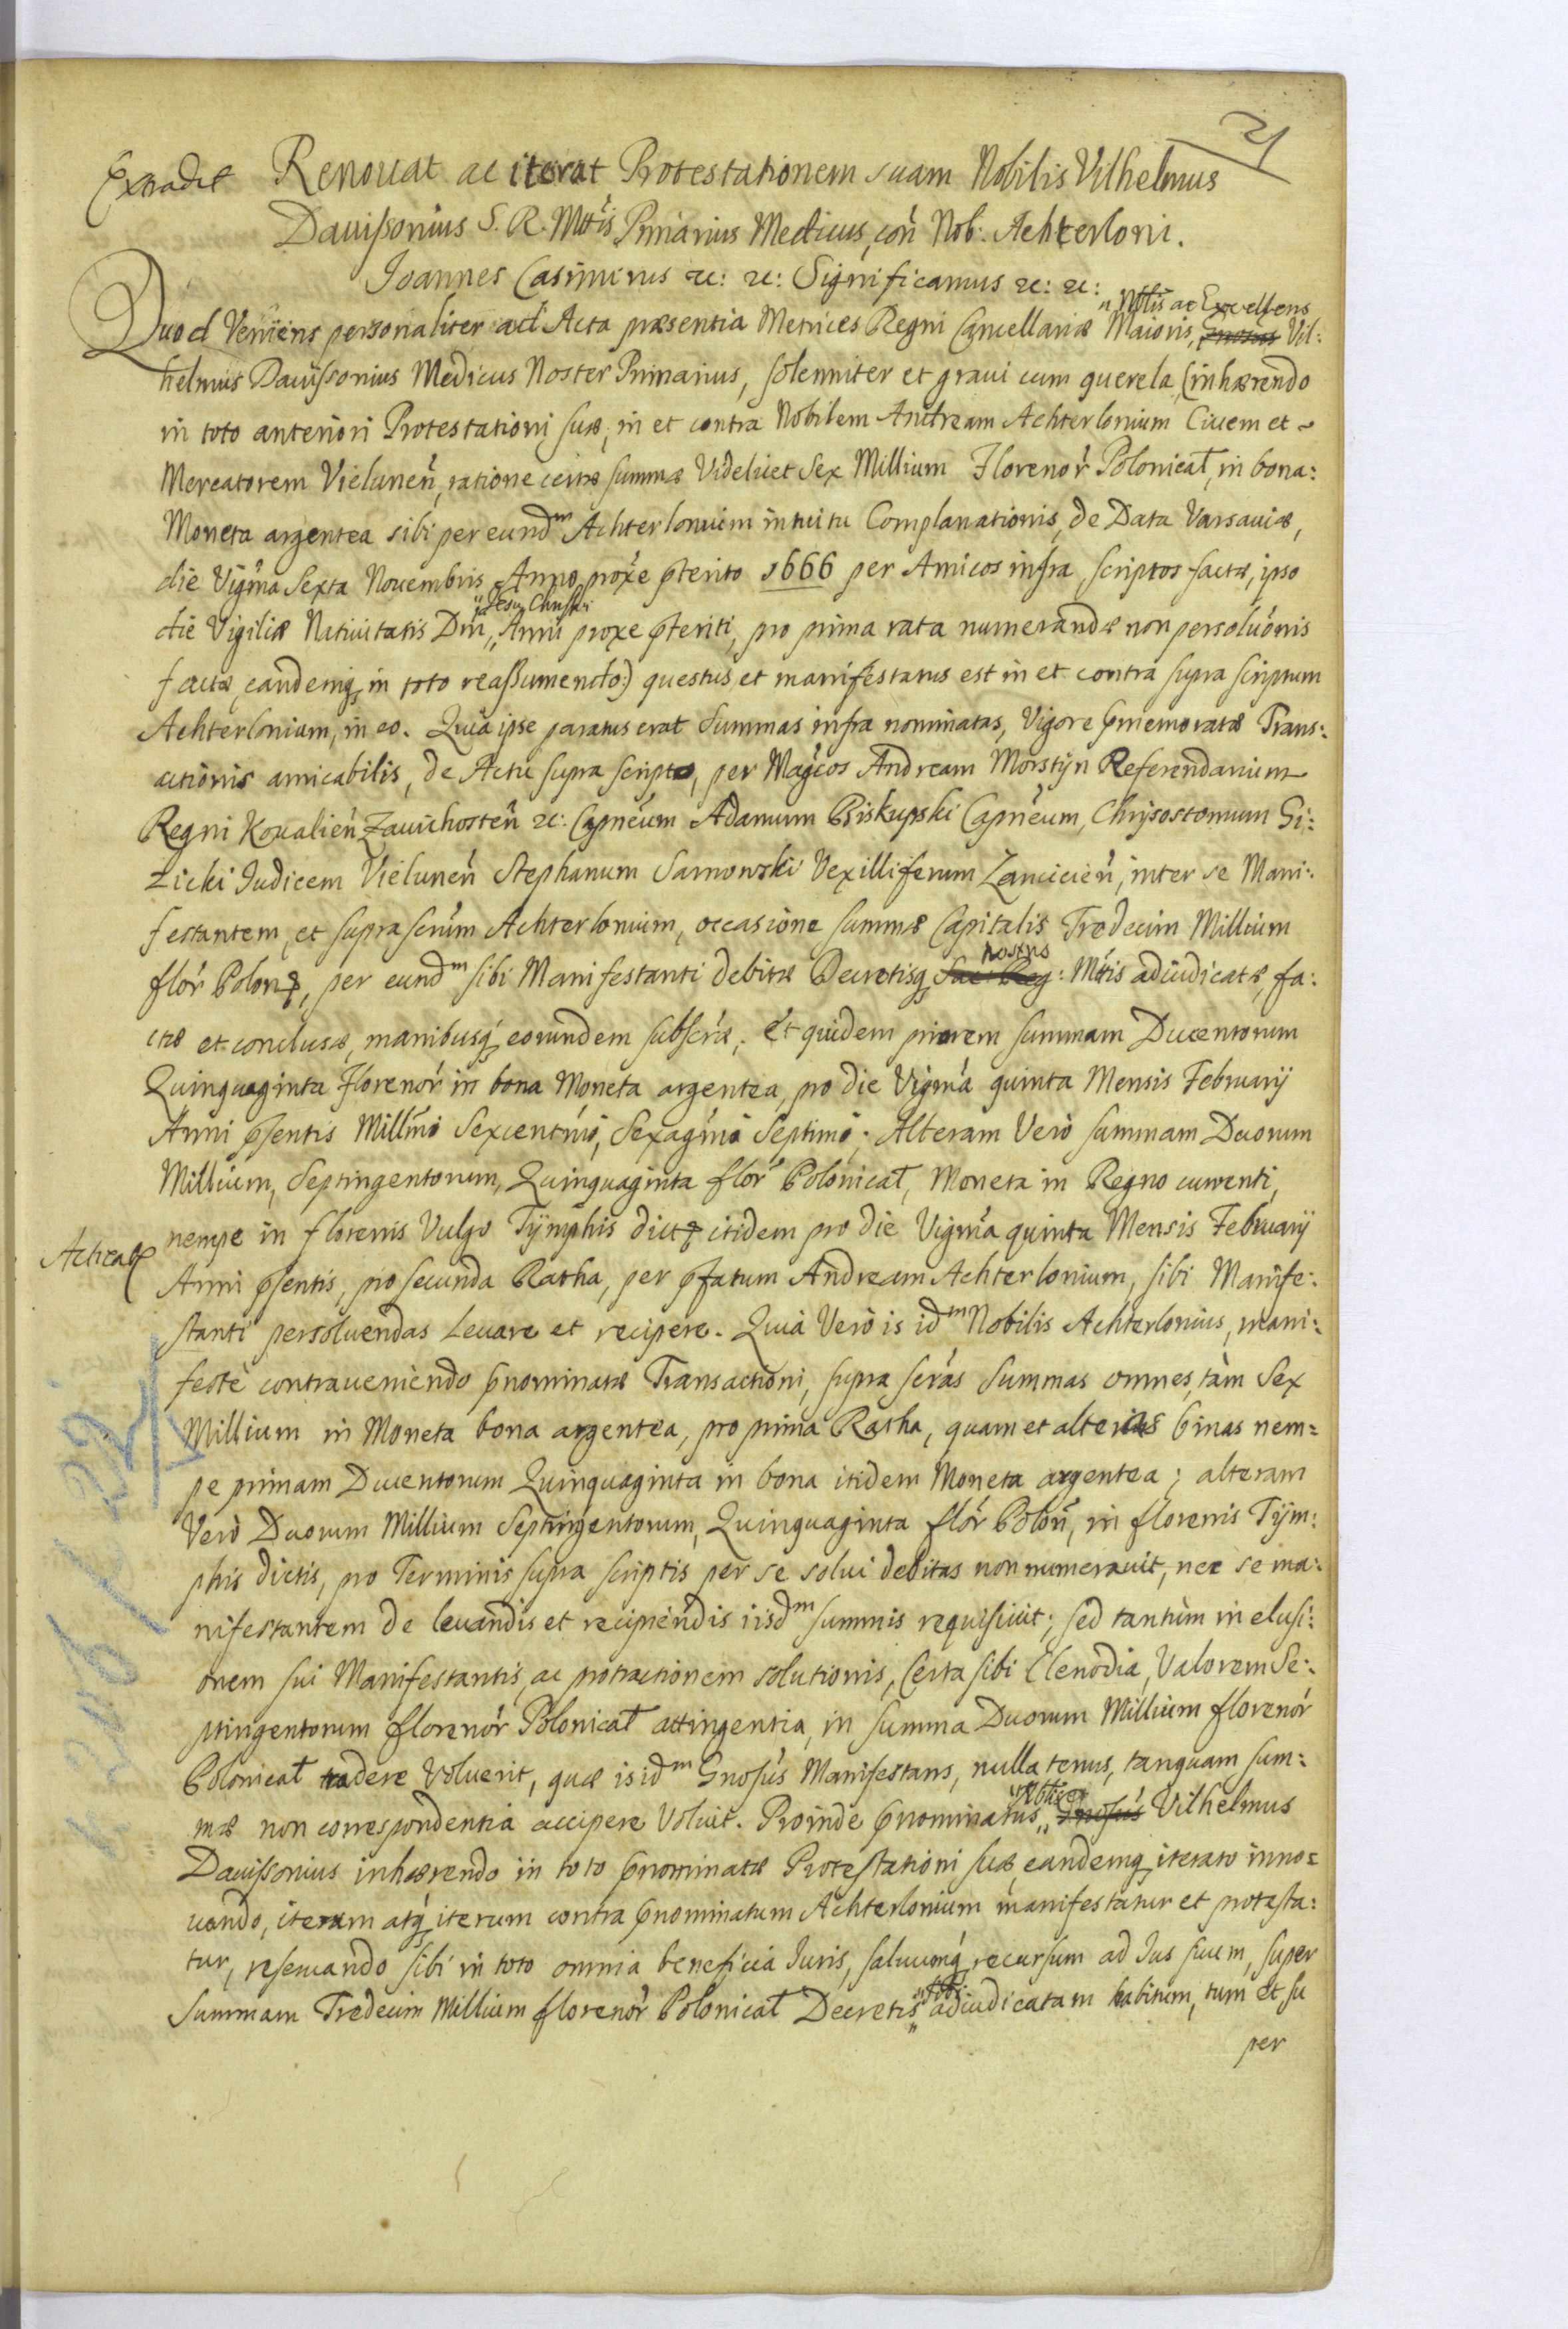 21
Extradit
Renouat ac iterat Protestationem suam Nobilis Vilhelmus
Dauissonius S. R. Mttis Primarius Medicus, con Nob: Achterloni.
Ioannes Casimirus etc: etc: Significamus etc: etc:
„Nbilis ac Excellens
Quod Veniens personaliter ad Acta præsentia Metrices Regni Cancellariæ Maioris, Gnosus Vil:
helmus Dauissonius Medicus Noster Primarius, solenniter et graui cum querela, (inhærendo
in toto anteriori Protestationi suæ, in et contra Nobilem Andream Achterlonium Ciuem et
Mercatorem Vielunen, ratione certæ summæ Videlicet Sex Millium Florenor Polonical, in bona:
Moneta argentea sibi per eundm Achterlonium intuitu Complanationis, de Data Varsauiæ,
die Vigma Sexta Nouembris Anno proxe pterito 1666 per Amicos infra scriptos factæ, ipso
„Jesu Christi
die Vigiliæ Natiuitatis Dni „ Anni proxe pteriti, pro prima rata numerandæ non persoluonis
factæ, eandemq in toto reassumendo:) questus et manifestatus est in et contra supra scriptum
Achterlonium, in eo. Quia ipse paratus erat Summas infra nominatas, Vigore pmemoratæ Trans:
actionis amicabilis, de Actu supra scripto, per Magcos Andream Morstÿn Referendarium
Regni Koualien Zauichosten etc: Capneum Adamum Biskupski Capneum, Chrysostomum Gi:
zicki Iudicem Vielunen Stephanum Sarnowski Vexilliferum Lanicien, inter se Mani:
festantem, et supra scrum Achterlonium, occasione summæ Capitalis Tredecim Millium
nostris
flor Polon, per eundm sibi Manifestanti debitæ Decretisq Sac: Reg: Mttis adiudicatæ, fa:
ctæ et conclusæ, manibusq eorundem subscræ; Et quidem priorem summam Ducentorum
Quinquaginta Florenor in bona Moneta argentea, pro die Vigma quinta Mensis Februarij
Anni psentis Millmo Sexcentmo, Sexagmo Septimo; Alteram Vero summam Duorum
Millium, Septingentorum, Quinquaginta flor Polonical, Moneta in Regno currenti,
nempe in florenis Vulgo Tÿmphis dict, itidem pro die Vigma quinta Mensis Februarij
Anni psentis, pro secunda Ratha, per pfatum Andream Achterlonium, sibi Manife:
stanti persoluendas Leuare et recipere. Quia Vero is idm Nobilis Achterlonius, mani:
feste contraueniendo pnominatæ Transactioni, supra scras Summas omnes, tam Sex
Millium in Moneta bona argentea, pro prima Ratha, quam et alteras binas nem=
pe primam Ducentorum Quinquaginta in bona itidem Moneta argentea; alteram
Vero Duorum Millium Septingentorum, Quinquaginta flor Polon, in florenis Tÿm:
phis dictis, pro Terminis supra scriptis per se solui debitas non numerauit, nec se ma:
nifestantem de leuandis et recipiendis iisdm summis requisiuit; sed tantum in elusi:
onem sui Manifestantis, ac protractionem solutionis, Certa sibi Clenodia, Valorem Se:
ptingentorum florenor Polonical attingentia, in summa Duorum Millium florenor
Polonical tradere Voluerit, quæ is idm Gnosus Manifestans, nulla tenus, tanquam sum:
mæ non correspondentia accipere Voluit. Proinde pnominatus „ Gnosus Vilhelmus
Dauissonius inhærendo in toto pnominatæ Protestationi suæ, eandemq iterato inno=
uando, iterum atq iterum contra pnominatum Achterlonium manifestatur et protesta:
tur, reseruando sibi in toto omnia beneficia Iuris, saluumq recursum ad Ius suum, super
„sibi
Summam Tredecim Millium florenor Polonical Decretis „ adiudicatam habitum, tum et su
per